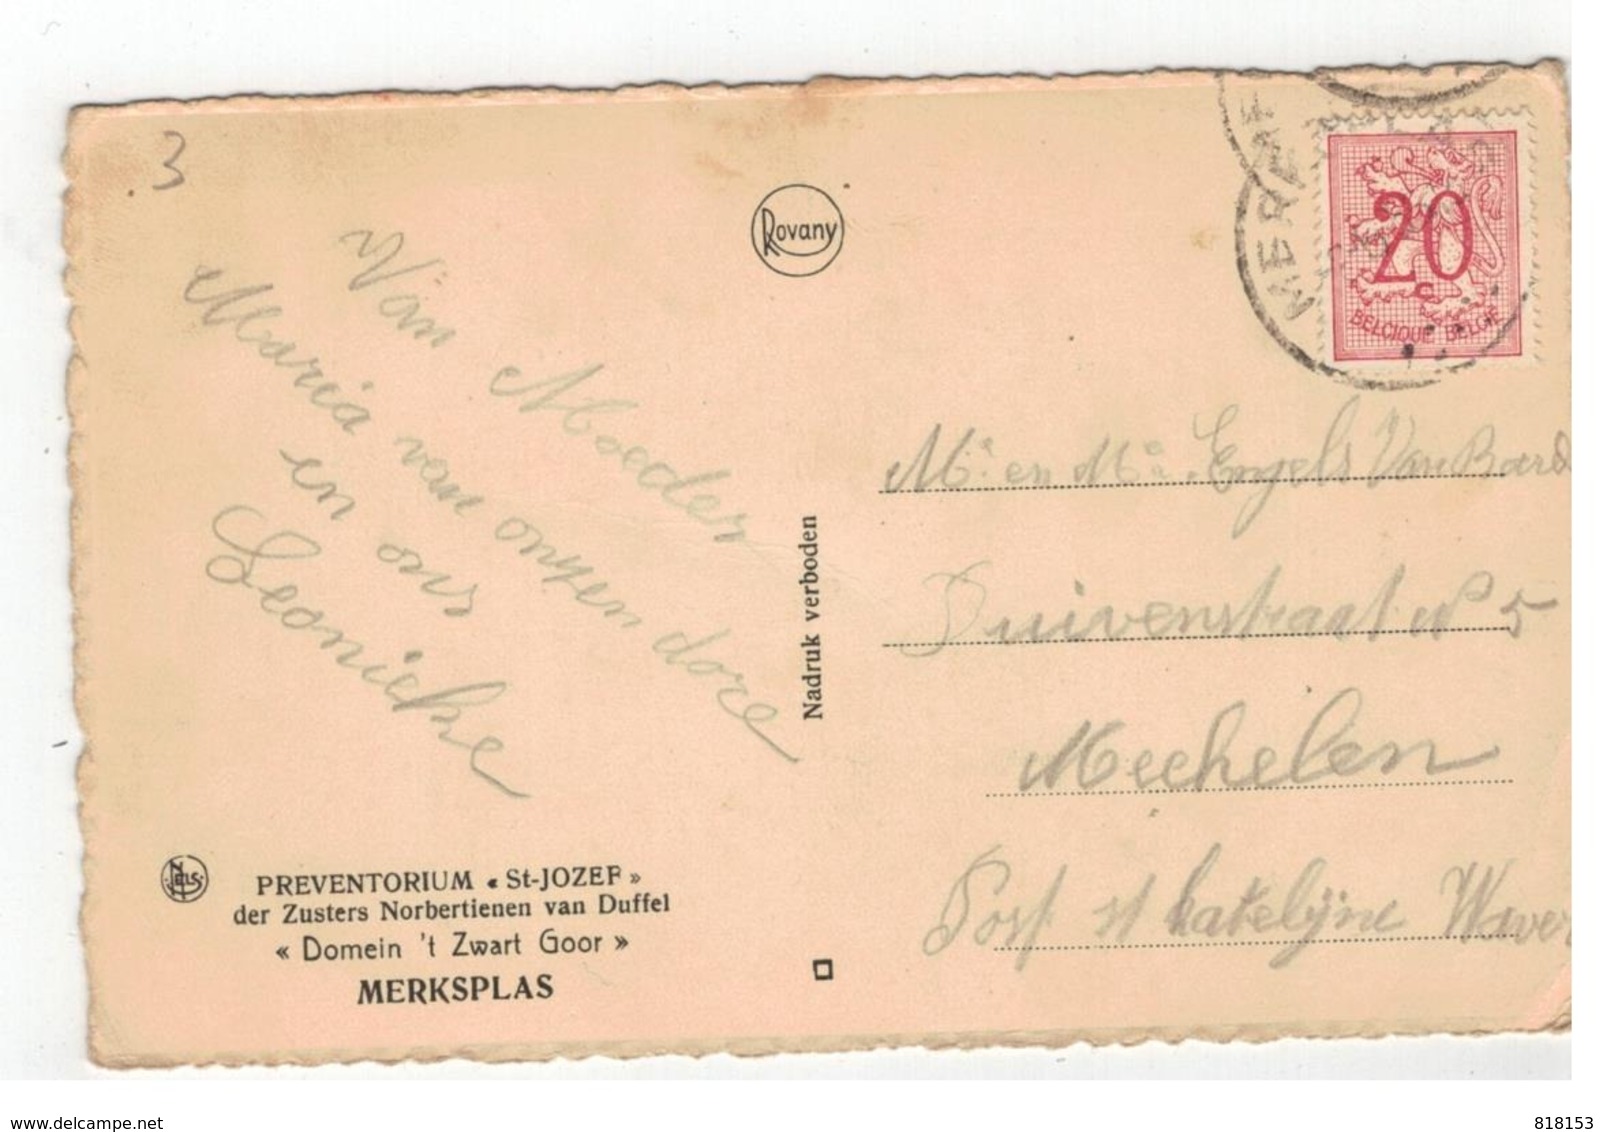 3
Rovany
Van Moeder
Maria van onzen dore
en ons
Leonieke
Nadruk verboden
NELS
PREVENTORIUM « St-JOZEF »
der Zusters Norbertienen van Duffel
« Domein 't Zwart Goor »
MERKSPLAS
20
c
BELGIQUE BELGIË
Mr en Me Engels Van
Duivenstraat No 5
Mechelen
Post st Katelijne Waver
www.delcampe.net
818153